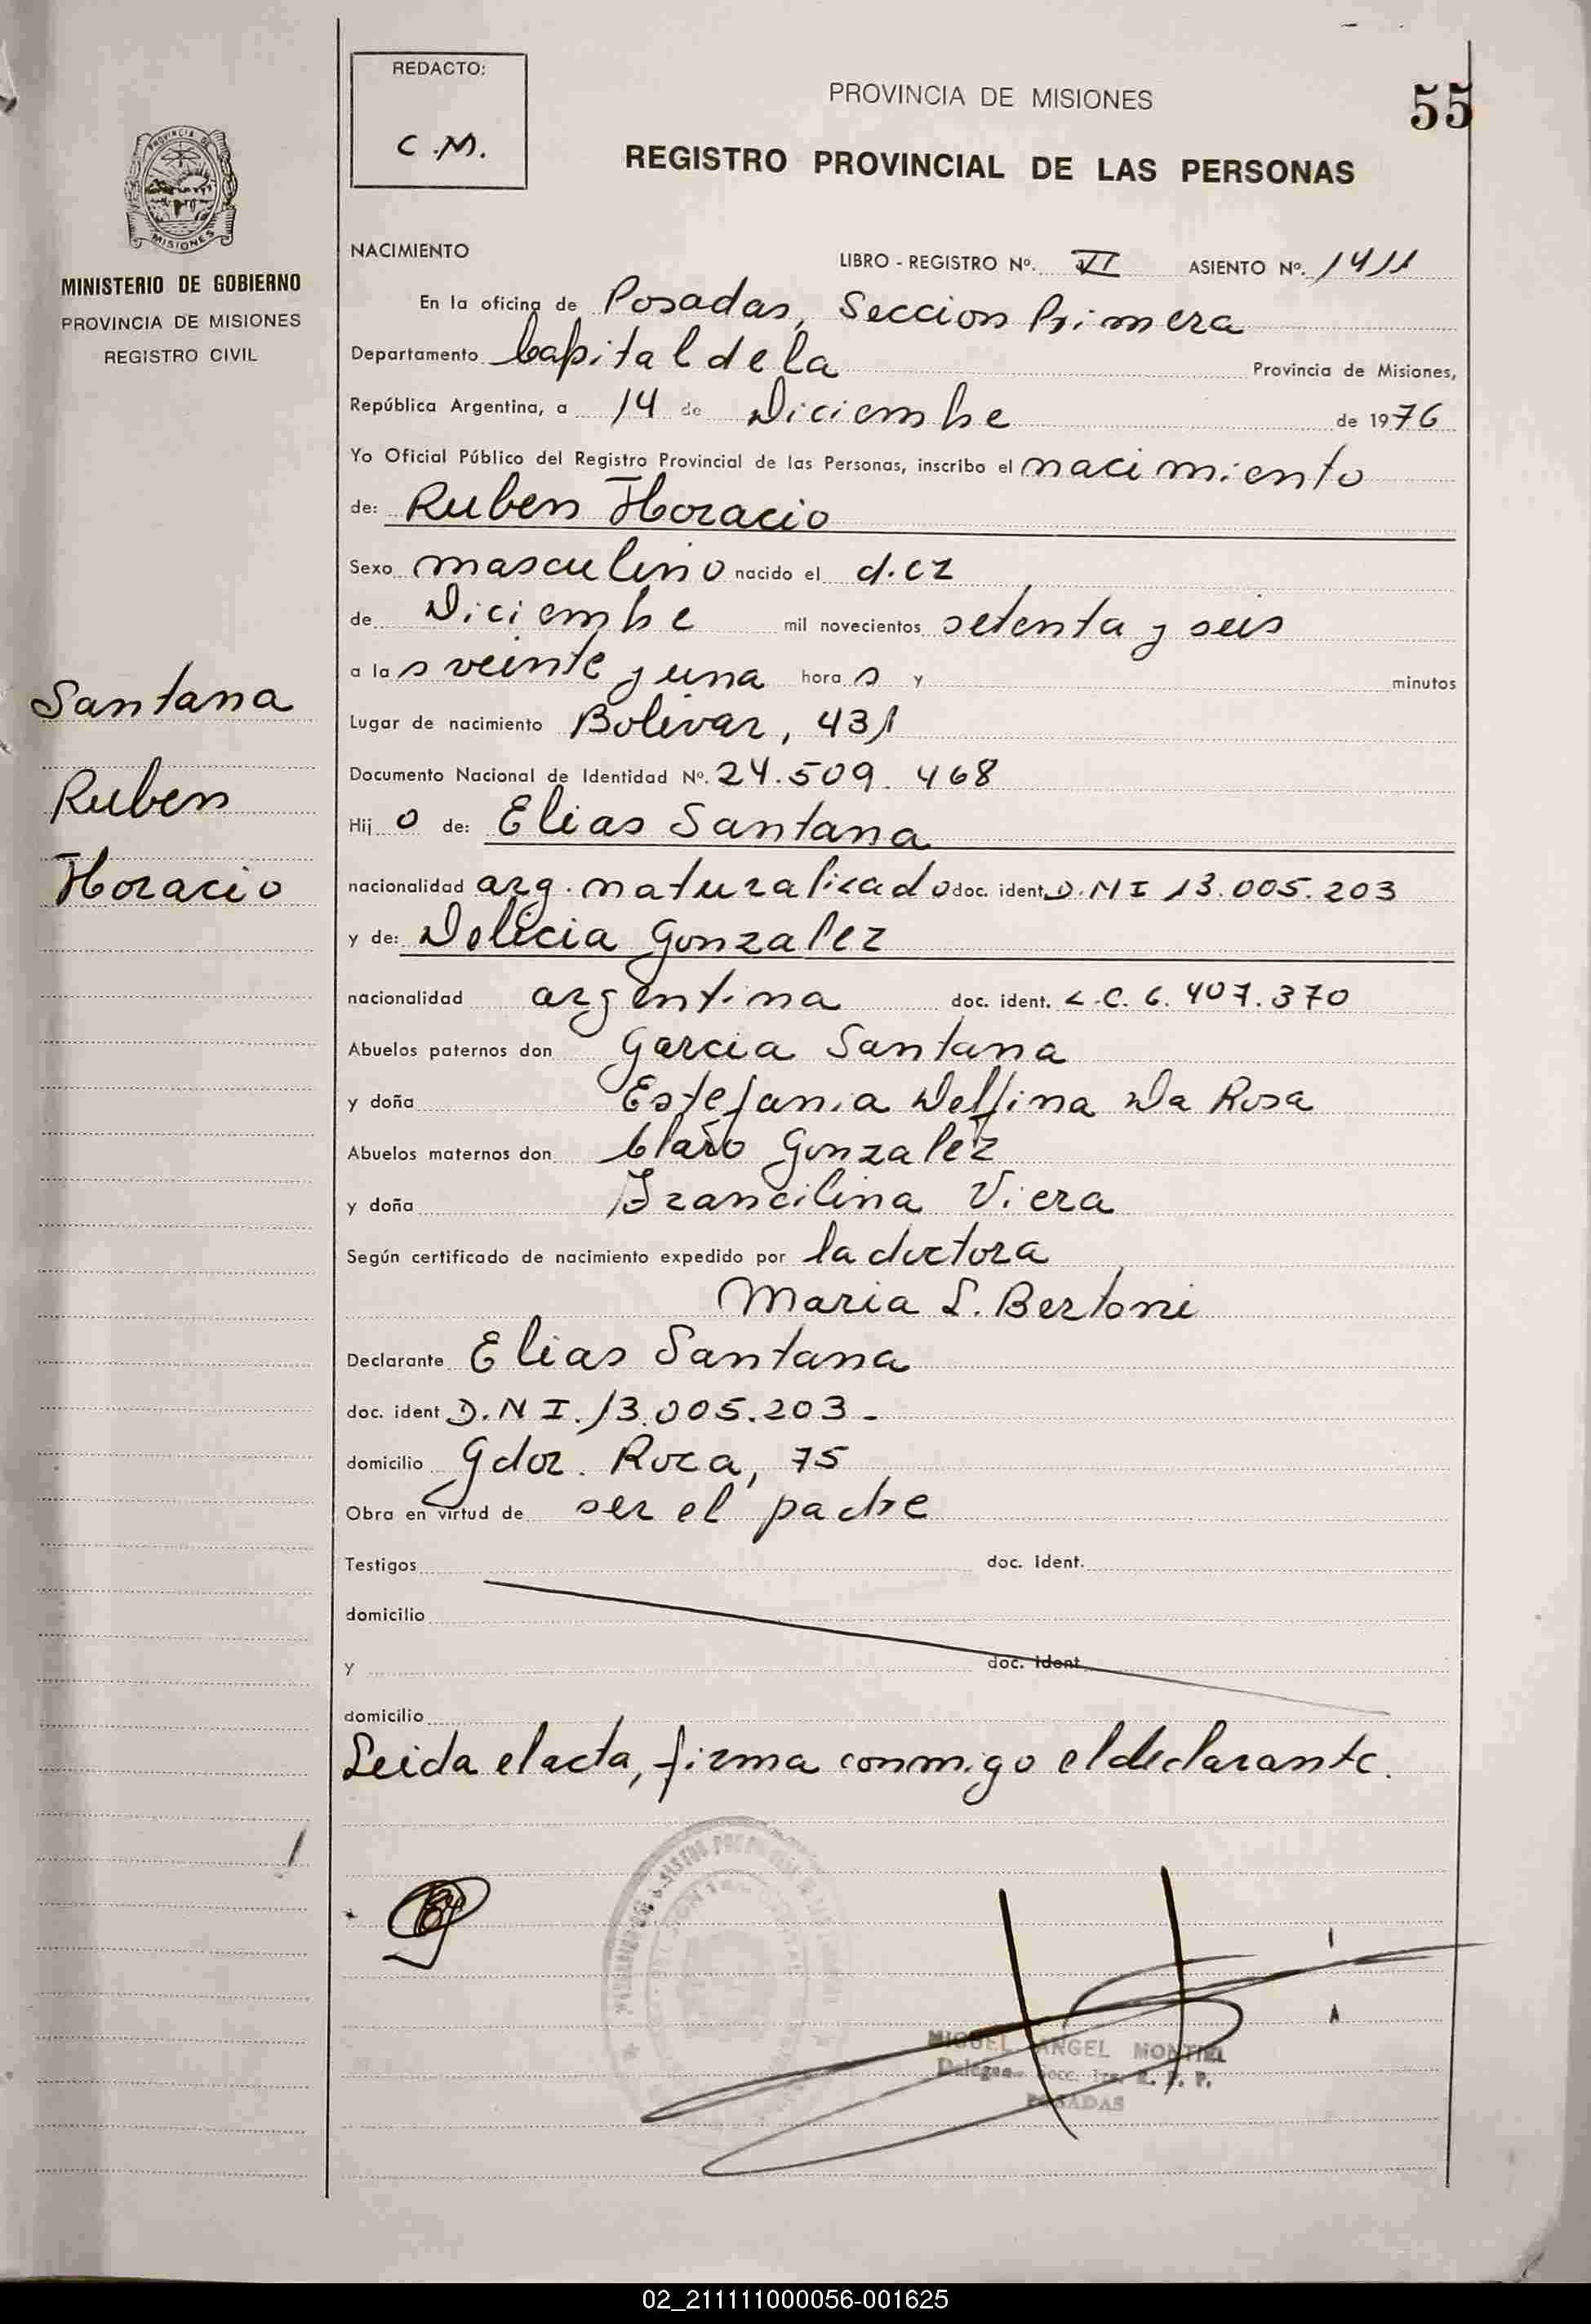 REDACTO:
C.M.
PROVINCIA DE MISIONES
55
REGISTRO PROVINCIAL DE LAS PERSONAS
PROVINCIA DE
MISIONES
MINISTERIO DE GOBIERNO
PROVINCIA DE MISIONES
REGISTRO CIVIL
NACIMIENTO
LIBRO - REGISTRO Nº. VI ASIENTO Nº. 1411
En la oficina de Posadas, Seccion Primera
Departamento Capital de la Provincia de Misiones,
República Argentina, a 14 de Diciembre de 1976
Yo Oficial Público del Registro Provincial de las Personas, inscribo el nacimiento
de: Ruben Horacio
Sexo masculino nacido el diez
de Diciembre mil novecientos setenta y seis
a las veinte y una horas y minutos
Lugar de nacimiento Bolivar, 431
Documento Nacional de Identidad Nº. 24.509.468
Hijo de: Elias Santana
nacionalidad arg. naturalizado doc. ident. D.N I 13.005.203
y de: Delicia Gonzalez
nacionalidad argentina doc. ident. L.C. 6.407.370
Abuelos paternos don Garcia Santana
y doña Estefania Delfina Da Rosa
Abuelos maternos don Claro Gonzalez
y doña Francilina Viera
Según certificado de nacimiento expedido por la doctora
Maria L. Bertoni
Declarante Elias Santana
doc. ident D.N I. 13.005.203.-
domicilio Gdor. Roca, 75
Obra en virtud de ser el padre
Testigos doc. ident.
domicilio
y doc. ident
domicilio
Leida el acta, firma conmigo el declarante.
Santana
Ruben
Horacio
MIGUEL ANGEL MONTIEL
R. P. P.
POSADAS
02_211111000056-001625